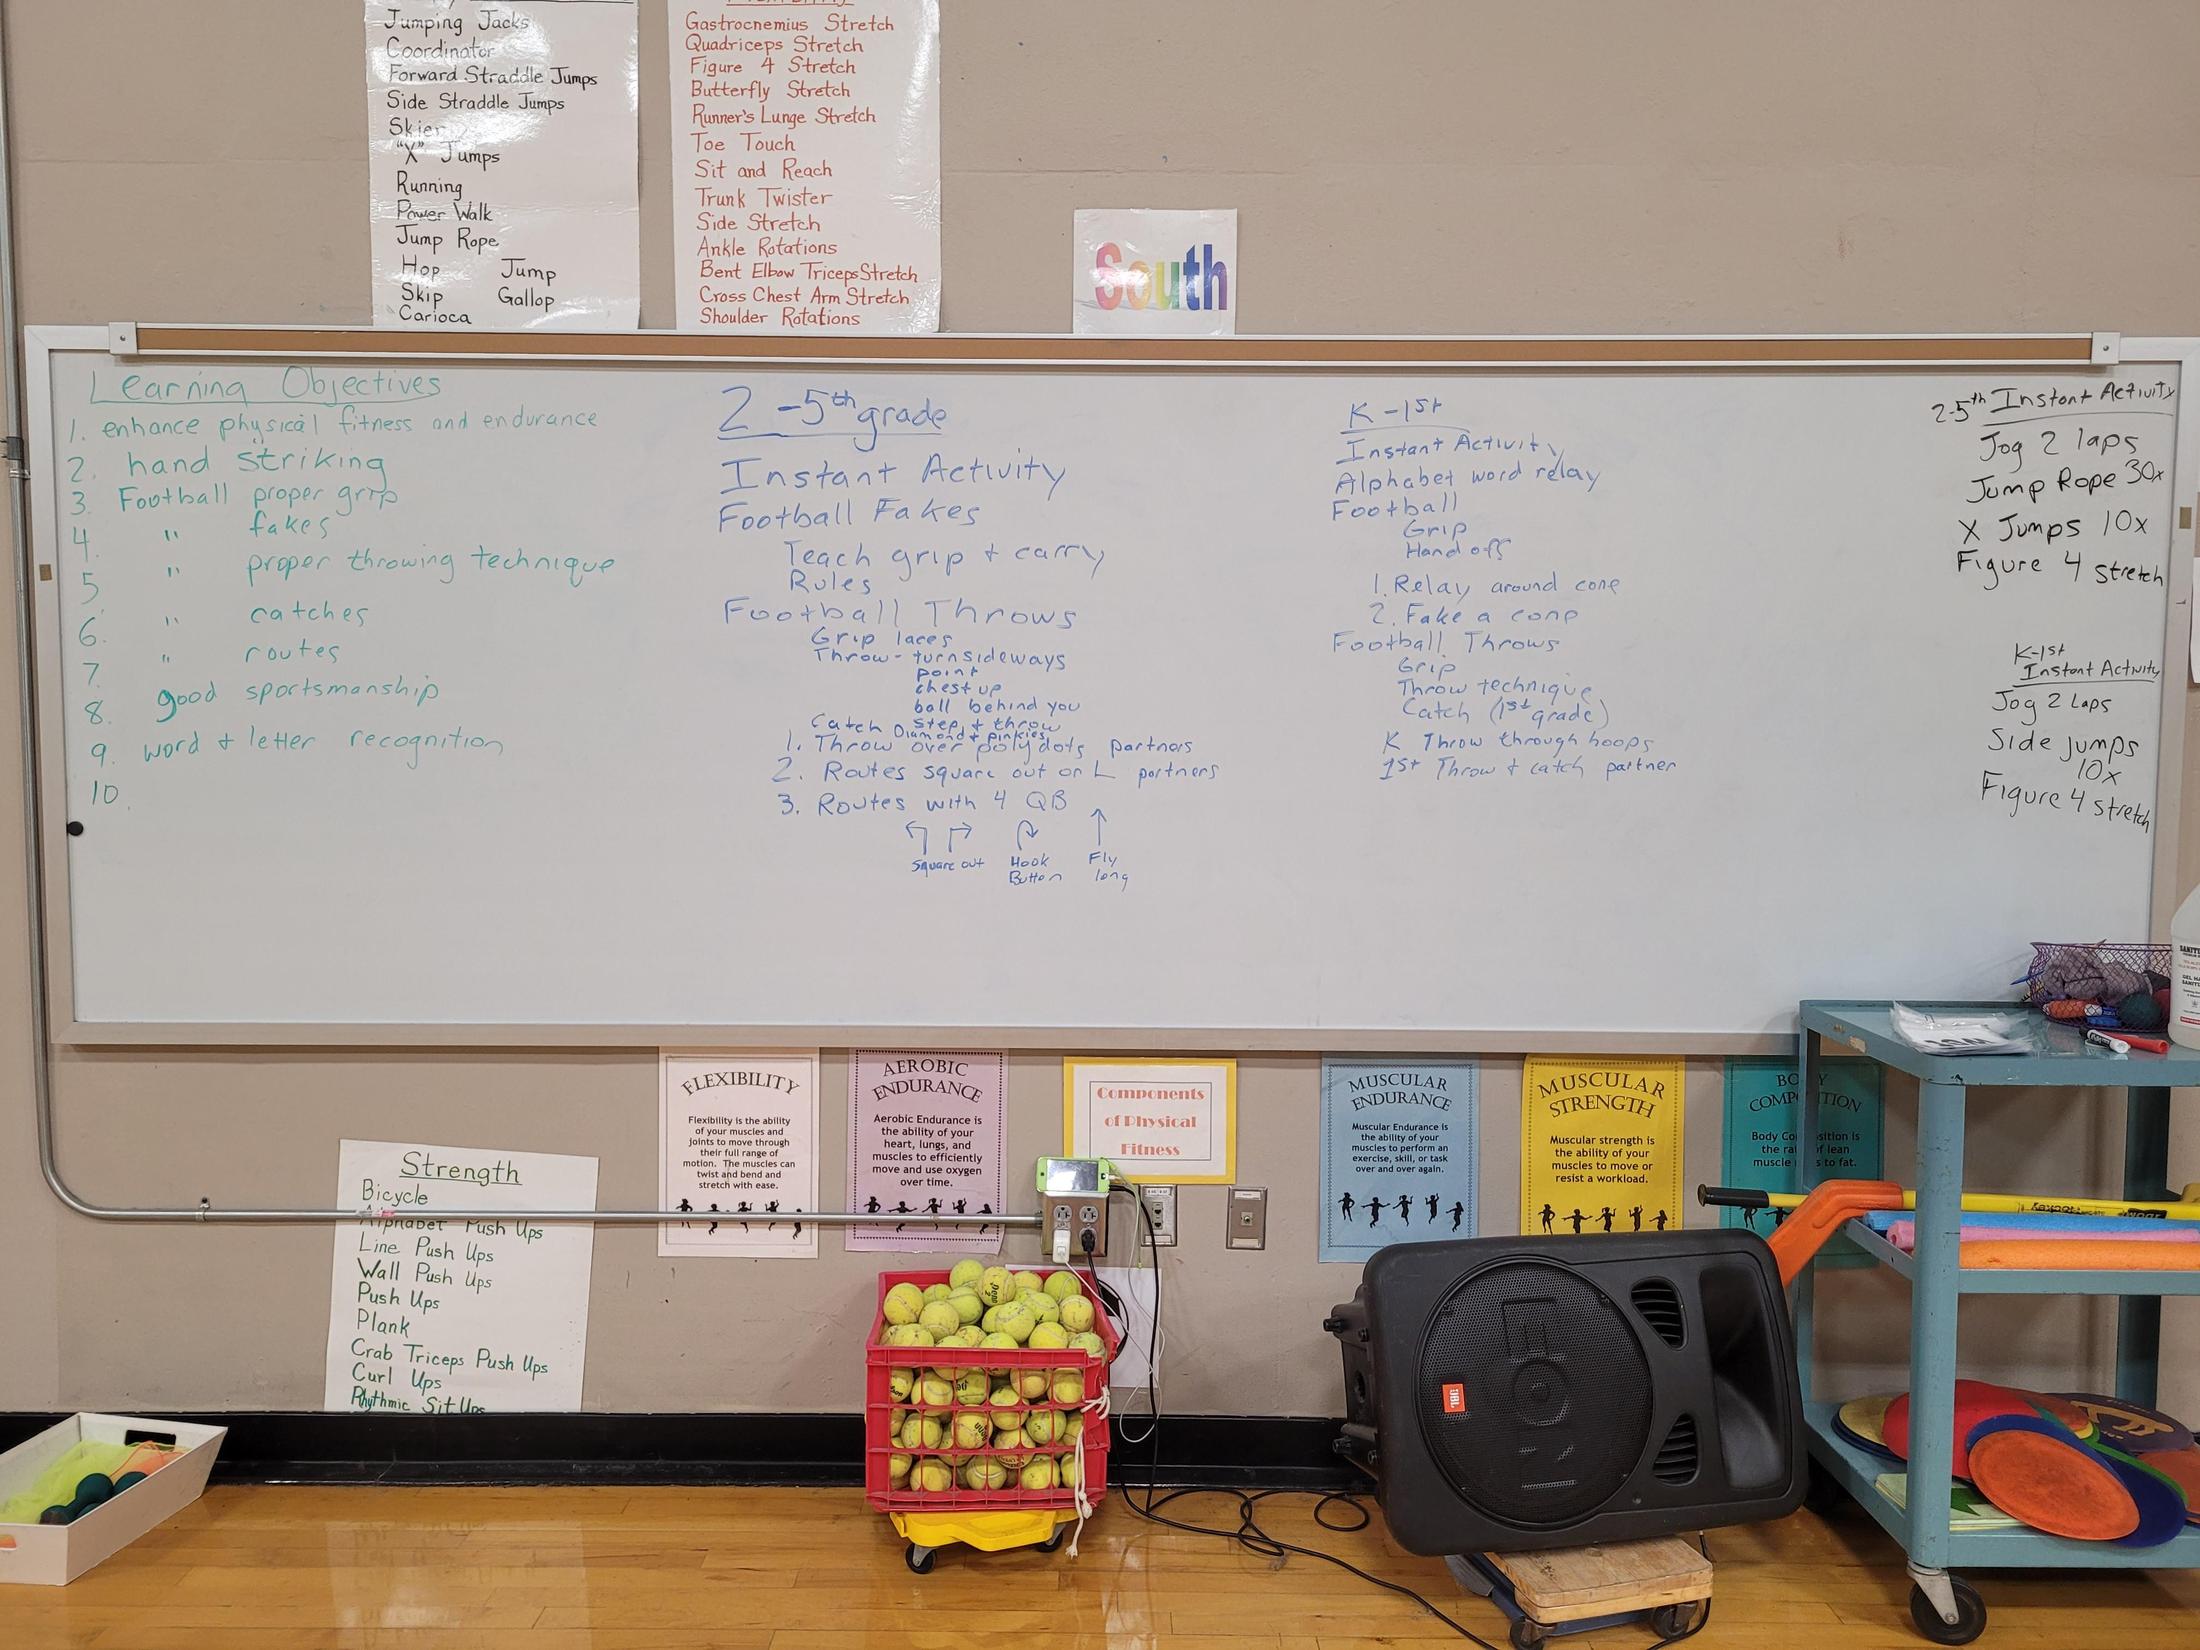 Jumping Jacks
Coordinator
Forward Straddle Jumps
Side Straddle Jumps
Skier
"X" Jumps
Running
Power Walk
Jump Rope
Hop Jump
Skip Gallop
Carioca
Gastrocnemius Stretch
Quadriceps Stretch
Figure 4 Stretch
Butterfly Stretch
Runner's Lunge Stretch
Toe Touch
Sit and Reach
Trunk Twister
Side Stretch
Ankle Rotations
Bent Elbow Triceps Stretch
Cross Chest Arm Stretch
Shoulder Rotations
South
Learning Objectives
1. enhance physical fitness and endurance
2. hand striking
3. Football proper grip
4. " fakes
5 " proper throwing technique
6. " catches
7. " routes
8. good sportsmanship
9. word + letter recognition
10.
2-5th grade
Instant Activity
Football Fakes
Teach grip + carry
Rules
Football Throws
Grip laces
Throw - turn sideways
point
chest up
ball behind you
step + throw
Catch Diamond + pinkies
1. Throw over polydots partners
2. Routes square out or L partners
3. Routes with 4 QB
Square out
Hook
Button
Fly
long
K-1st
Instant Activity
Alphabet word relay
Football
Grip
Hand off
1. Relay around cone
2. Fake a cone
Football Throws
Grip
Throw technique
Catch (1st grade)
K Throw through hoops
1st Throw + catch partner
2-5th Instant Activity
Jog 2 laps
Jump Rope 30x
X Jumps 10x
Figure 4 stretch
K-1st
Instant Activity
Jog 2 Laps
Side jumps
10x
Figure 4 stretch
FLEXIBILITY
Flexibility is the ability
of your muscles and
joints to move through
their full range of
motion. The muscles can
twist and bend and
stretch with ease.
AEROBIC
ENDURANCE
Aerobic Endurance is
the ability of your
heart, lungs, and
muscles to efficiently
move and use oxygen
over time.
Components
of Physical
Fitness
MUSCULAR
ENDURANCE
Muscular Endurance is
the ability of your
muscles to perform an
exercise, skill, or task
over and over again.
MUSCULAR
STRENGTH
Muscular strength is
the ability of your
muscles to move or
resist a workload.
BODY
COMPOSITION
Body Composition is
the of lean
muscle to fat.
Strength
Bicycle
Alphabet Push Ups
Line Push Ups
Wall Push Ups
Push Ups
Plank
Crab Triceps Push Ups
Curl Ups
Rhythmic Sit Ups
JBL
Penn
2